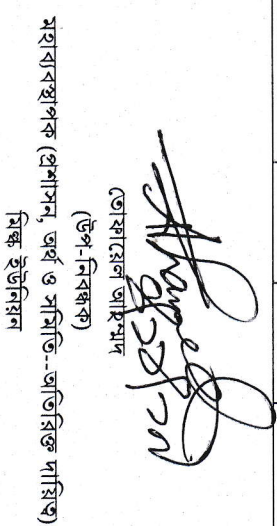 (তোফায়েল আহম্মদ)
(উপ-নিবন্ধক)
মহাব্যবস্থাপক (প্রশাসন, অর্থ ও সমিতি--অতিরিক্ত দায়িত্ব)
মিল্ক ইউনিয়ন